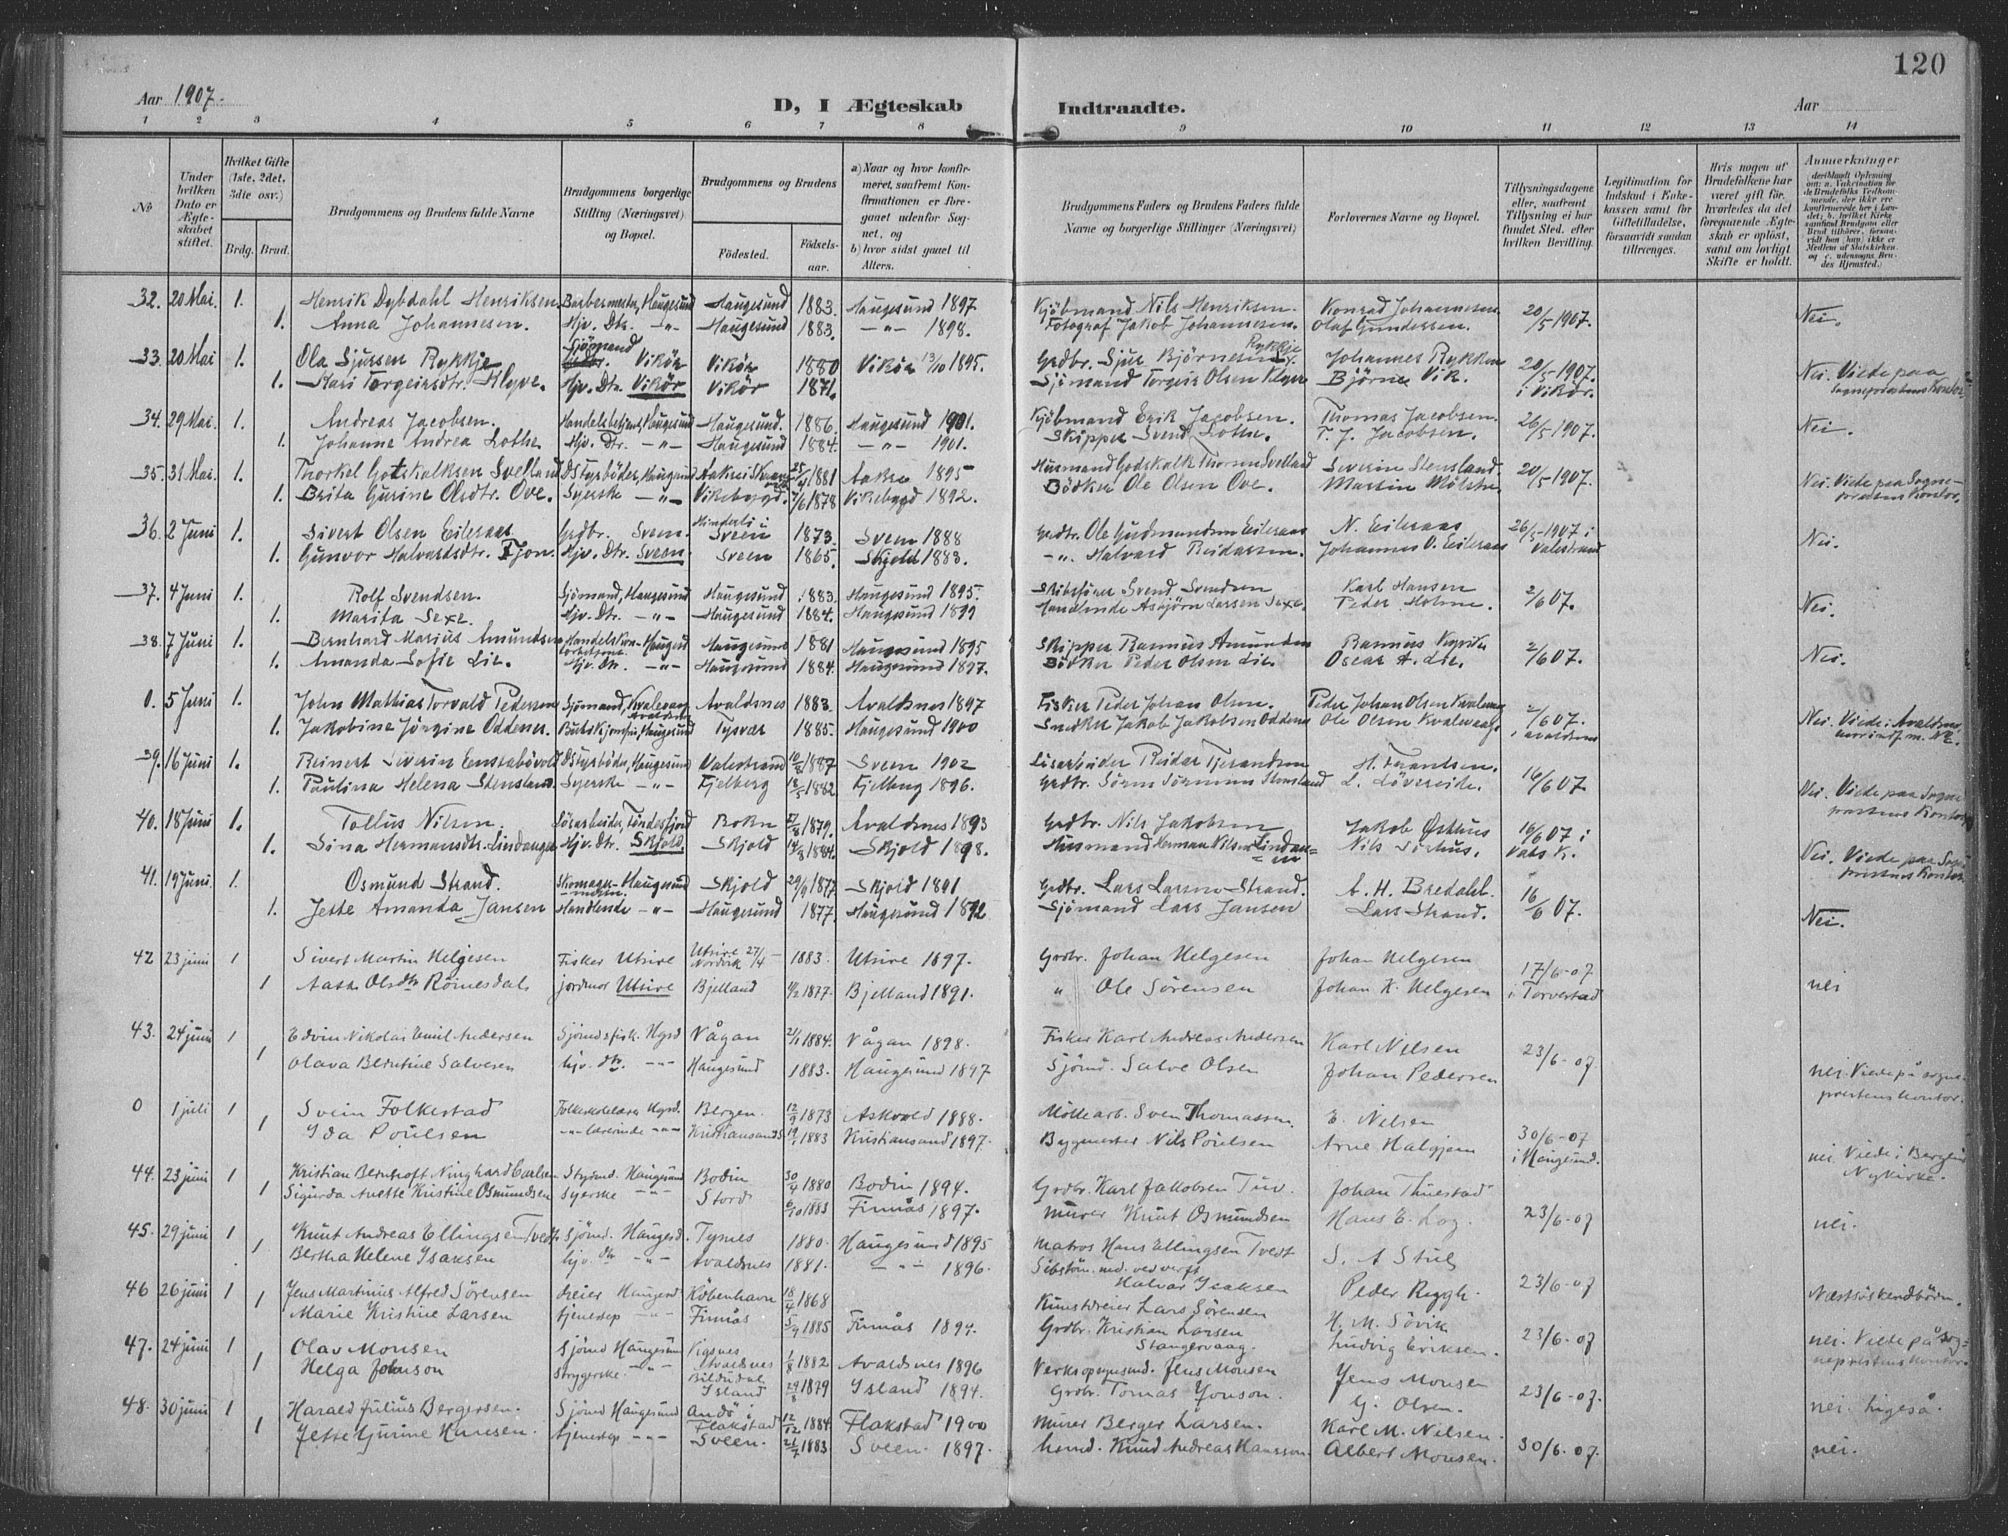 120
Aar 1907.
D, I Ægteskab Indtraadte.
Aar
1 2 3 4 5 6 7 8 9 10 11 12 13 14
No
Under hvilken Dato er Ægteskabet stiftet.
Hvilket Gifte (1ste, 2det, 3die osv.)
Brdg. Brud.
Brudgommens og Brudens fulde Navne
Brudgommens borgerlige Stilling (Næringsvei) og Bopæl.
Brudgommens og Brudens
Fødested. Fødselsaar.
a) Naar og hvor konfirmeret, saafremt Konfirmationen er foregaaet udenfor Sognet, og
b) hvor sidst gaaet til Alters.
Brudgommens Faders og Brudens Faders fulde Navne og borgerlige Stillinger (Næringsvei)
Forlovernes Navne og Bopæl.
Tillysningsdagene eller, saafremt Tillysning ei har fundet Sted, efter hvilken Bevilling.
Legitimation for Indskud i Enkekassen samt for Giftetilladelse, forsaavidt saadan tiltrænges.
Hvis nogen af Brudefolkene har været gift før, hvorledes da det foregaaende Ægteskab er opløst, samt om lovligt Skifte er holdt.
Anmerkninger
32. 20 Mai. 1. Henrik Dybdahl Henriksen. Barbermester, Haugesund Haugesund 1883. Haugesund 1897 Kjöbmand Nils Henriksen. Konrad Johannesen 20/5 1907. Nei.
1. Anna Johannesen. Hjv. Dtr. -"- Haugesund 1883. -"- 1898. Fotograf Jakob Johannesen. Olaf Gundersen.
33. 20 Mai 1. Ola Sjursen Rykkje Sjömand Vikör Vikör 1880 Vikör 13/10 1895. Grdbr. Sjur Björnesen Rykkje Johannes Rykken 20/5 1907. i Vikör. Nei. Viede paa Sogneprestens Kontor
1. Mari Torgeirsdtr. Klyve. Hjv. Dtr. Vikör Vikör 1871. Sjömand Torgeir Olsen Klyve Björne Vik.
34. 29 Mai. 1. Andreas Jacobsen. Handelsbetjent, Haugesund Haugesund. 1886. Haugesund 1901. Kjöbmand Erik Jacobsen. Thomas Jacobsen. 26/5 1907. Nei.
1. Johanne Andrea Lothe Hjv. Dtr. -"- Haugesund 1884. -"- 1901. Skipper Svend Lothe. T. J. Jacobsen.
35. 31 Mai. 1. Thorkel Gotskalksen Svelland DStyrböder, Haugesund Aakre i Skaanevik 25/4 1881 Aakre 1895 Husmand Godskalk Thorsen Svelland Severin Stensland. 20/5 1907. Nei. Viede paa Sogneprestens Kontor.
1. Brita Gurine Olsdtr. Ove. Syerske -"- Vikebygd. 7/6 1878 Vikebygd 1892. Bödker Ole Olsen Ove. Martin Mölstre.
36. 2 Juni 1. Sivert Olsen Eileraas Grdbr. Sveen. Sveen 1873. Sveen 1888 Grdbr. Ole Gudmundsen Eileraas N. Eileraas 26/5 1907 i Valestrand Nei.
1. Gunvor Halvardsdtr. Tjon. Hjv. Dtr. Sveen. Sveen 1865. Skjold 1883. -"- Halvard Reidarsen. Johannes O. Eileraas
37. 4 Juni 1. Rolf Svendsen. Sjömand, Haugesund Haugesund 1883. Haugesund 1895. Skibsförer Svend Svendsen Karl Hansen 2/6 07. Nei.
1. Marita Sexe. Hjv. Dtr. -"- Haugesund 1884. Haugesund 1899 Handlende Asbjörn Larsen Sexe. Peder Holme.
38. 7 Juni 1. Bernhard Marius Amundsen Haugesund 1881 Haugesund 1895 Skipper Rasmus Amundsen Rasmus 2/6 07. Nei.
1. Amanda Sofie Lie. Hjv. Dtr. -"- Haugesund 1884. Haugesund 1897. Bödker Peder Olsen Lie. Oscar A. Lie.
0. 5 Juni 1. John Mathias Torvald Pedersen Sjömand, Kvalevaag Avaldsnes Avaldsnes 1883. Avaldsnes 1897 Fisker Peder Johan Olsen. Peder Johan Olsen Kvalevaag 2/6 07. i Avaldsnes Nei. Viede i Avaldsnes
1. Jakobine Jörgine Oddenes. Haugesund Tysvær 1885. Haugesund 1900 Snedker Jakob Jakobsen Oddenes Ole Olsen Kvalevaag.
39. 16 Juni 1. Reinert Severin Enstabövold DStyrböder, Haugesund Valestrand 10/8 1887 Sveen 1902 Lösarbeider Reidar Tjerandsen H. Frantsen. 16/6 07 Nei. Viede paa Sogneprestens Kontor
1. Paulina Helena Stensland. Syerske -"- Fjelberg 18/5 1882 Fjelberg 1896. Grdbr. Sören Sörensen Stensland L. Lövereide.
40. 18 Juni 1. Tollus Nilsen. Lösarbeider, Fördesfjord Bokn 27/8 1879. Avaldsnes 1893 Grdbr. Nils Jakobsen Jakob Östhus 16/6 07 i Vats K. Nei. Viede paa Sogneprestens Kontor.
1. Sina Hermansdtr. Lindanger Hjv. Dtr. Skjold. Skjold 14/8 1884. Skjold 1898. Husmand Herman Nilsen Lindanger Nils
41. 19 Juni. 1. Osmund Strand. Haugesund Skjold 29/9 1877 Skjold 1891 Grdbr. Lars Larsen Strand. A. H. Bredahl. 16/6 07. Nei.
1. Jette Amanda Jansen Handlende -"- Haugesund 1877. Haugesund 1892 Sjömand Lars Jansen Lars Strand.
42 23 juni 1 Sivert Martin Helgesen Fisker Utsire Utsire Nordvik 27/4 1883. Utsire 1897. Grdbr. Johan Helgesen Johan Helgesen 17/6-07 i Torvestad nei
1 Aasa Olsdtr Römesdal jordmor Utsire Bjelland 11/12 1877. Bjelland 1891. " Ole Sörensen Johan K. Helgesen
43. 24 juni 1 Edvin Nikolai Emil Andersen Sjömdsfisk. Hgsd Vågan 21/1 1884. Vågan 1898. Fisker Karl Andreas Andersen Karl Nilsen 23/6-07 nei. Viede på sogneprestens kontor.
1 Olava Berntine Salvesen hjv. dtr. -"- Haugesund 1883. Haugesund 1897 Sjömd. Salve Olsen Johan Pedersen
0 1 juli 1 Svein Folkestad Folkeskolelærer Hgsd. Bergen. 12/9 1873 Askvold 1888. Möllearb. Sven Thomassen E. Nilsen 30/6-07 i Haugesund. nei Viede i Bergen Nykirke.
1 Ida Poulsen -"- lærerinde -"- Kristiansand 19/1 1883 Kristiansand 1897. Bygmester Nils Poulsen Arne Halgjem
44. 23 juni 1 Kristian Bernhoft Ninghard Carlsen Styrmd. Haugesund Bodin 30/4 1880 Bodin 1894. Grdbr. Karl Jakobsen Tuv. Johan Thuestad 23/6-07 nei.
1 Sigurda Anette Kristine Osmundsen Syerske -"- Stord 6/10 1883 Finnås 1897. Murer Knut Osmundsen Hans E. Log.
45. 29 juni 1 Knut Andreas Ellingsen Tvedt Sjömd. Haugesd. Tysnes 1880. Haugesund 1895 Matros Hans Ellingsen Tvedt S. A Stul 23/6-07
1 Bertha Helene Isaksen hjv. dtr -"- Avaldsnes 1881. -"- 1896. Halvar Isaksen Peder Rygh.
46 26 juni 1 Jens Martinius Alfred Sörensen dreier Haugesd Köbenhavn 18/4 1868 Kunstdreier Lars Sörensen H. M. Sövik 23/6-07 Næstsöskendbörn.
1 Marie Kristine Larsen tjenestep -"- Finnås 5/9 1885 Finnås 1894. Grdbr. Kristian Larsen Stangervaag. Ludvig Eriksen.
47. 24 juni 1 Olav Monsen Sjömd Haugesund Vigsnes Avaldsnes 1/8 1882 Avaldsnes 1896 Verksopsynsmd. Jens Monsen Jens Monsen 23/6-07. nei. Viede på sogneprestens kontor.
1 Helga Johnson Strygerske -"- Bildudal Island 29/8 1879 Island 1894. Grdbr. Tomas Jonson. G. Olsen.
48. 30 juni 1 Harald Julius Bergersen. Sjömd Haugesund Andö i Flakstad 12/12 1884 Flakstad 1900 Murer Berger Larsen. Karl M. Nilsen. 30/6-07. nei. ligeså
1 Jette Gurine Hansen. tjenestep -"- Sveen. 21/7 1883 Sveen. 1897. Knud Andreas Hansson Albert Monsen. nei.